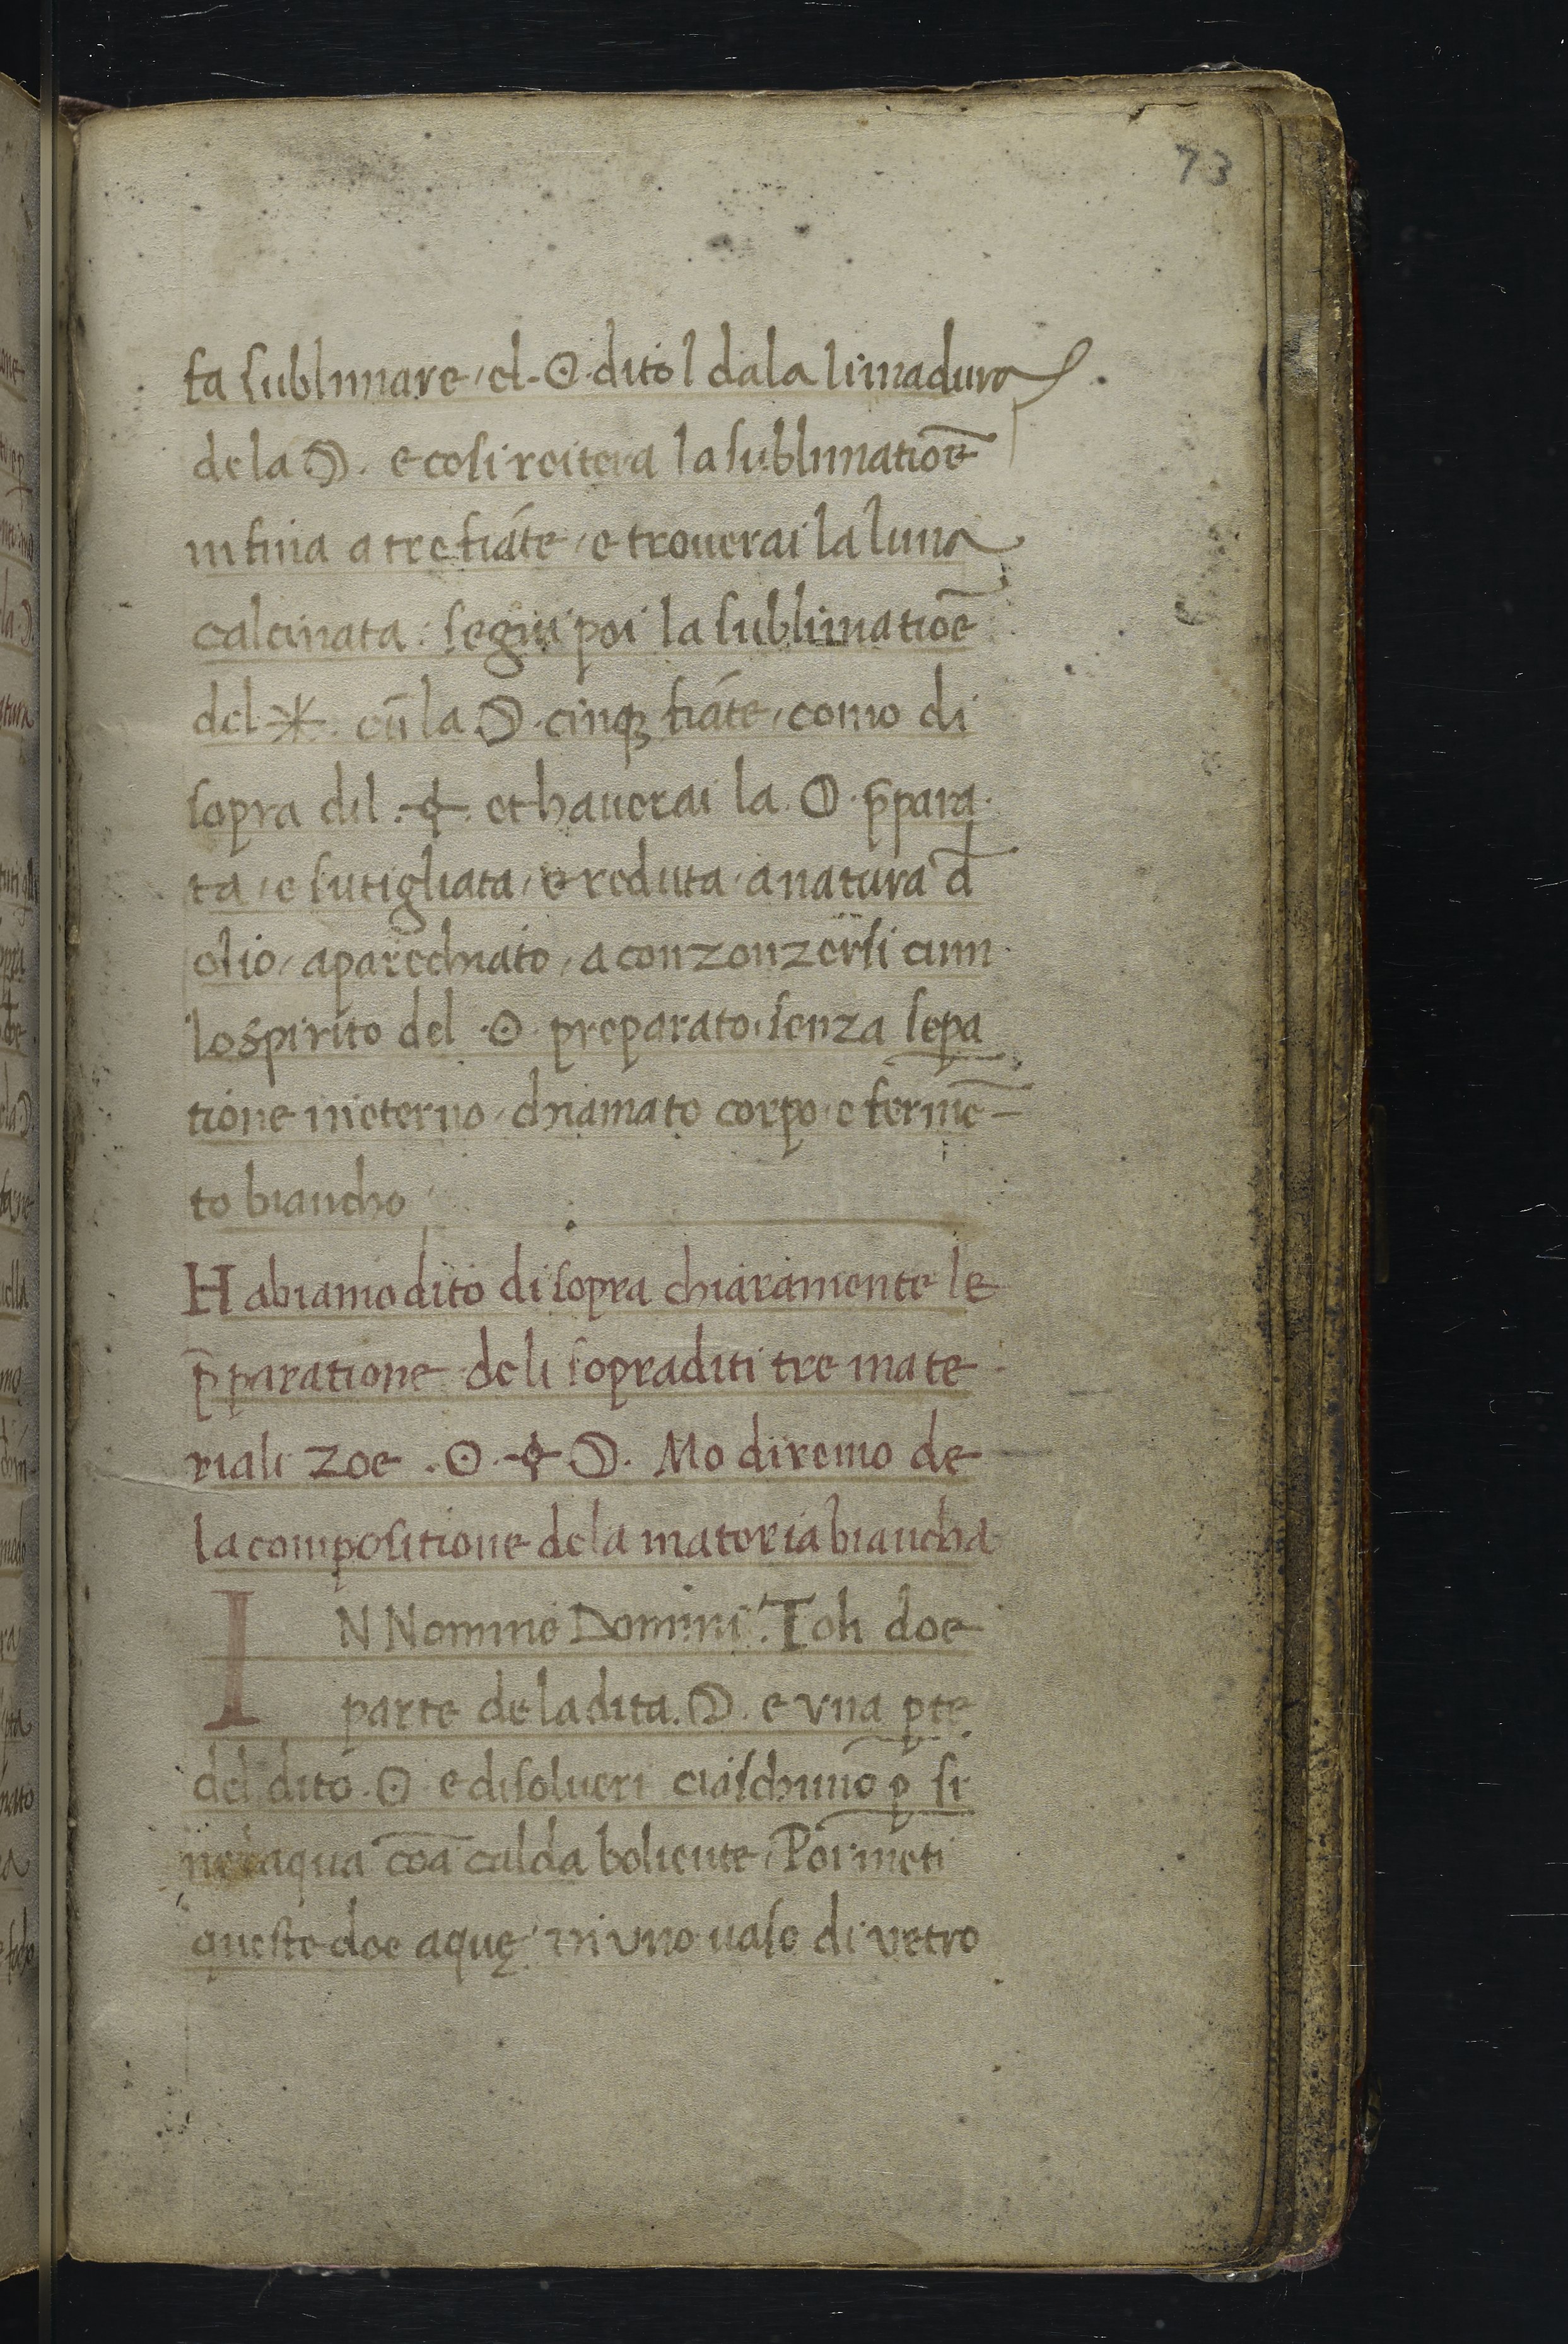 73
fa sublimare, el. ☉. dito l dala limadura
dela ☽. e cosi reitera la sublimatiōe
infina a tre fiāte, e trouerai la luna
calcinata: segui poi la sublimatiōe
del ⚹. cū la ☽. cinqꝫ fiāte, como di
sopra dil. 🜍. et hauerai la. ☽. p̄para
ta, e sutigliata, e reduta, a natura đ
olio, aparechiato, a conzonzersi cum
lo spirito del .☉. preparato, senza sepa
tione in eterno, chiamato corpo, e fermē
to biancho,
Habiamo dito di sopra chiaramente le
p̄paratione deli sopraditi tre mate
riali zoe .☉. 🜍 ☽. Mo diremo de
la compositione dela materia biancha
IN Nomine Domini. Toli doe
parte dela dita. ☽. e vna ꝑte
del dito. ☉. e disolueri ciaschuno ꝑ si
ne laqua cōa calda boliente, Poi meti
queste doe aquę in vno uaso di vetro